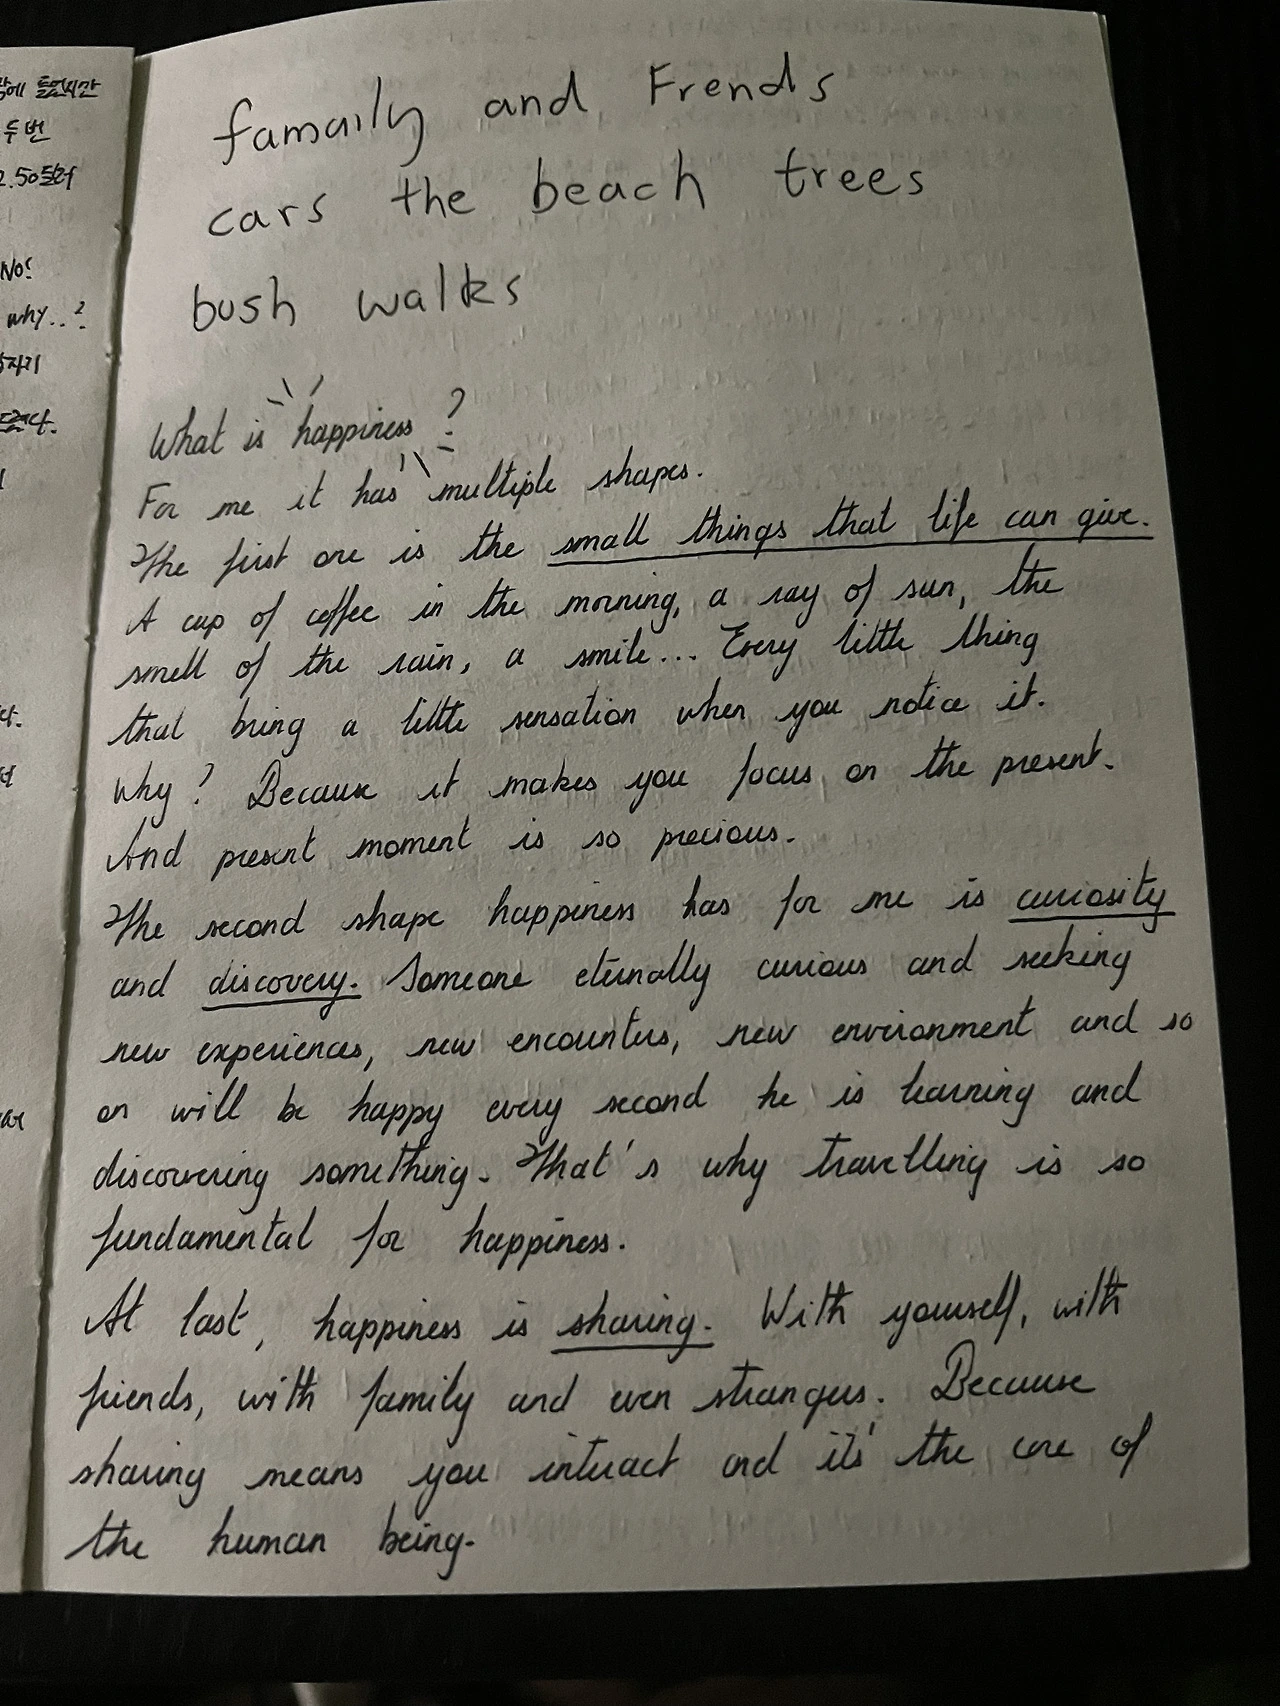 두번
2.50달러
No!
why..?
famaily and Frends
cars the beach trees
bush walks
What is happiness?
For me it has multiple shapes.
The first one is the small things that life can give.
A cup of coffee in the morning, a ray of sun, the
smell of the rain, a smile... Every little thing
that bring a little sensation when you notice it.
Why? Because it makes you focus on the present.
And present moment is so precious.
The second shape happiness has for me is curiosity
and discovery. Someone eternally curious and seeking
new experiences, new encounters, new environment and so
on will be happy every second he is learning and
discovering something. That's why travelling is so
fundamental for happiness.
At last, happiness is sharing. With yourself, with
friends, with family and even strangers. Because
sharing means you interact and it's the core of
the human being.